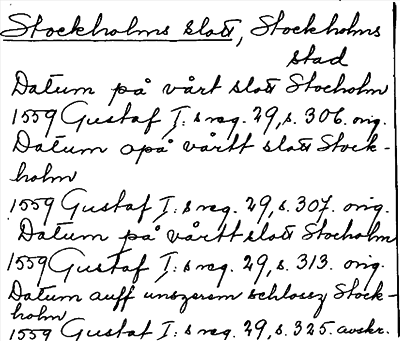 Stockholms slott, Stockholms
stad
Datum på vårt slott Stocholm
1559 Gustaf I:s reg. 29, s. 306. orig.
Datum opå vårtt slott Stock-
holm
1559 Gustaf I:s reg. 29, s. 307. orig.
Datum på vårtt slott Stocholm
1559 Gustaf I:s reg. 29, s. 313. orig.
Datum auff unszerem schlossz Stock-
holm
1559 Gustaf I:s reg. 29, s. 325. avskr.